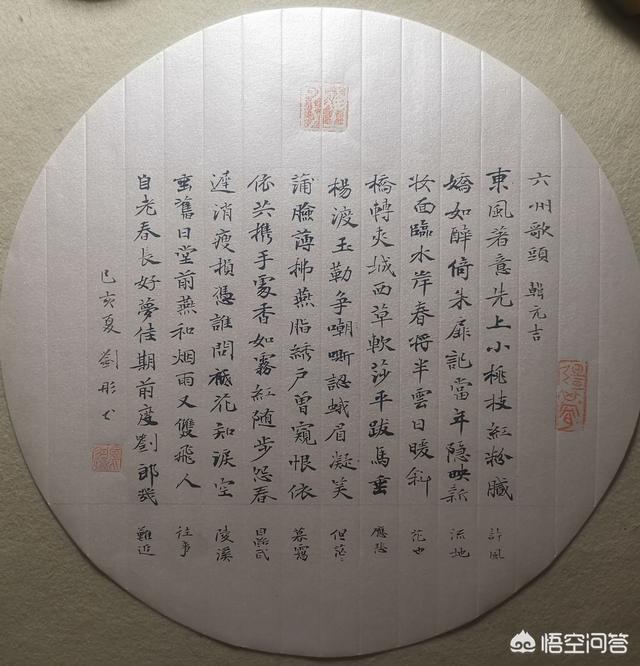 六州歌頭 韓元吉
東風著意先上小桃枝紅粉膩
嬌如醉倚朱扉記當年隱映新
妝面臨水岸春將半雲日暖斜
橋轉夾城西草軟莎平跋馬垂
楊渡玉勒争嘲嘶認蛾眉凝笑
臉薄拂燕脂綉戶曾窺恨依
依共携手處香如霧紅随步怨春
遲消瘦損憑誰問衹花知淚空
垂舊日堂前燕和烟雨又雙飛人
自老春長好夢佳期前度劉郎幾
許風
流地
花也
應悲
但茫々
暮靄
目斷武
陵溪
往事
難追
己亥夏 劉彤书
悟空问答